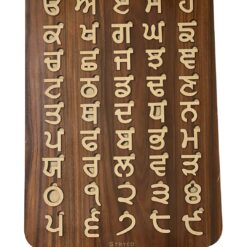 ੳ ਅ ੲ ਸ ਹ
ਕ ਖ ਗ ਘ ਙ
ਚ ਛ ਜ ਝ ਞ
ਟ ਠ ਡ ਢ ਣ
ਤ ਥ ਦ ਧ ਨ
ਪ ਫ ਬ ਭ ਮ
ਯ ਰ ਲ ਵ ੜ
੦ ੧ ੨ ੩ ੪
੫ ੬ ੭ ੮ ੯